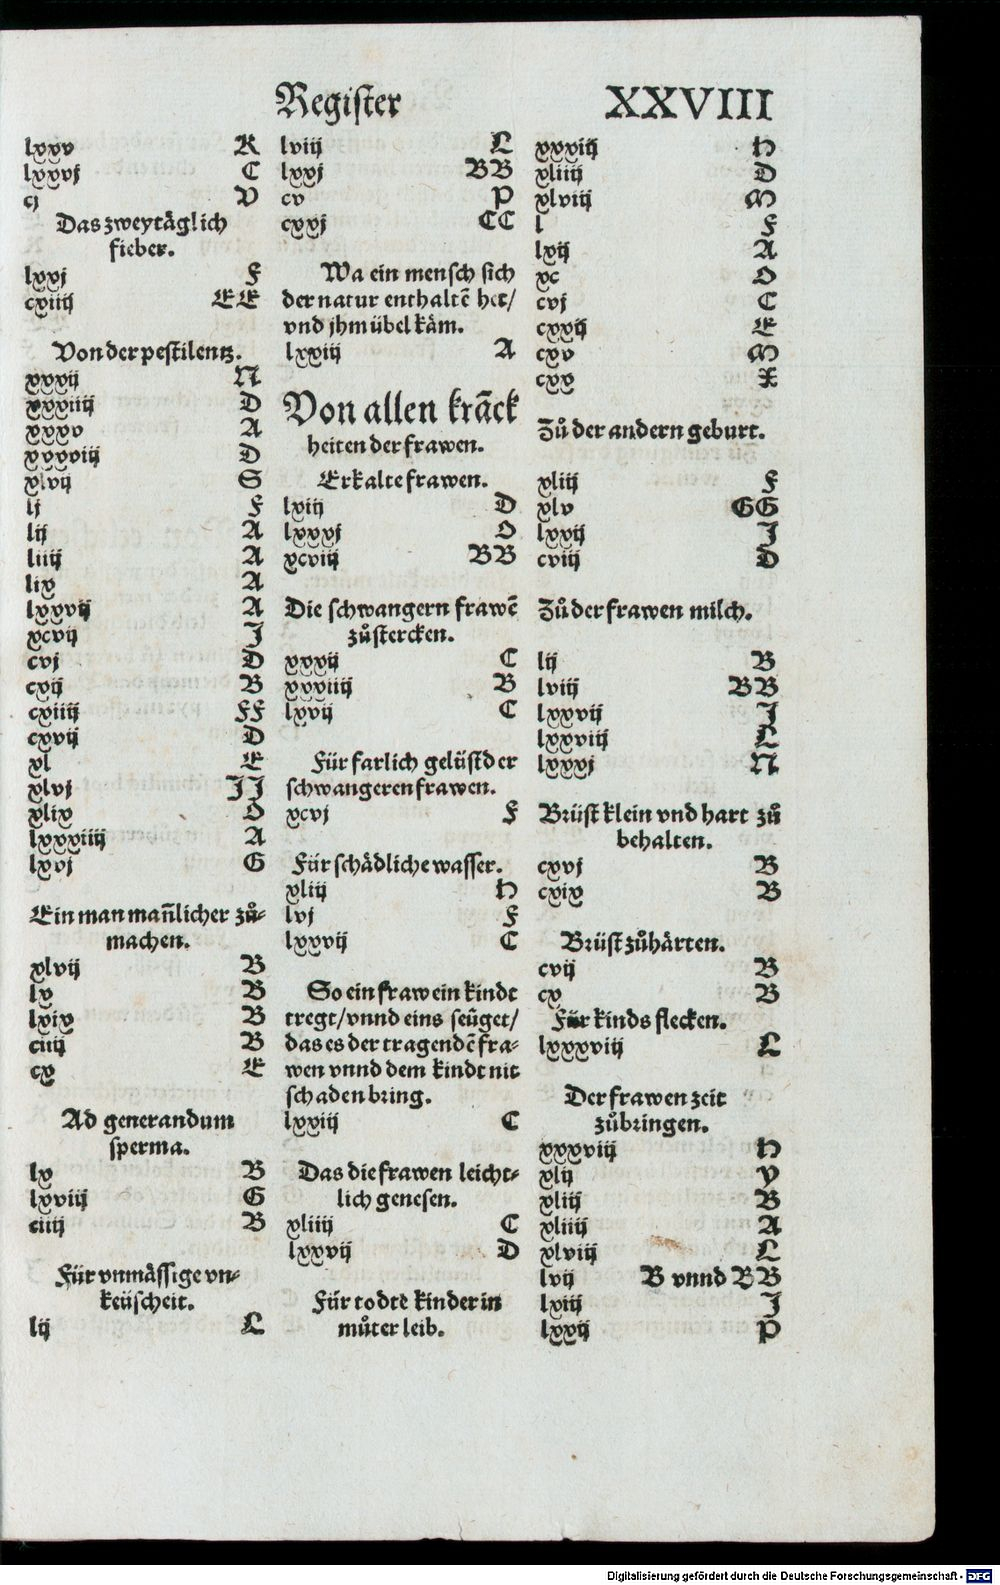 Register XXVIII
lxxv K
lxxvj C
cj V
Das zweytäglich
fieber.
lxxj F
cxiij EE
Von der pestilentz.
xxxij N
xxxiiij D
xxxv A
xxxviij D
xlvij S
lj F
lij A
liiij A
lix A
lxxvij A
xcvij J
cvj D
cxij B
cxiiij FF
cxvij D
xl E
xlvj JJ
xlix O
lxxxiiij A
lxvj G
Ein man mañlicher zů-
machen.
xlvij B
lv B
lxix B
ciiij B
cx E
Ad generandum
sperma.
lx B
lxviij G
ciiij B
Für vnmässige vn-
keüscheit.
lij L
lviij L
lxxj BB
cv P
cxxj CC
Wa ein mensch sich
der natur enthaltē het/
vnd jhm übel käm.
lxxiij A
Von allen krāck
heiten der frawen.
Erkalte frawen.
lxiij D
lxxxj O
xcviij BB
Die schwangern frawē
zůstercken.
xxxij C
xxxiiij B
lxvij C
Für farlich gelüst der
schwangeren frawen.
xcvj F
Für schädliche wasser.
xliij H
lvj F
lxxvij C
So ein fraw ein kindt
tregt/vnnd eins seüget/
das es der tragendē fra-
wen vnnd dem kindt nit
schaden bring.
lxxiij C
Das die frawen leicht-
lich genesen.
xliiij C
lxxvij D
Für todte kinder in
můter leib.
xxxiij H
xliiij D
xlviij M
l F
lxij A
xc O
cvj C
cxxij E
cxv M
cxx X
Zů der andern geburt.
xliij F
xlv GG
lxxij J
cviij D
Zů der frawen milch.
lij B
lviij BB
lxxvij J
lxxviij L
lxxxj N
Brüst klein vnd hart zů
behalten.
cxvj B
cxix B
Brüst zůhärten.
cvij B
cx B
Für kinds flecken.
lxxxviij L
Der frawen zeit
zůbringen.
xxxviij H
xlij V
xliij B
xliiij A
xlviij L
lvij B vnnd BB
lxiij J
lxxij P
Digitalisierung gefördert durch die Deutsche Forschungsgemeinschaft - DFG